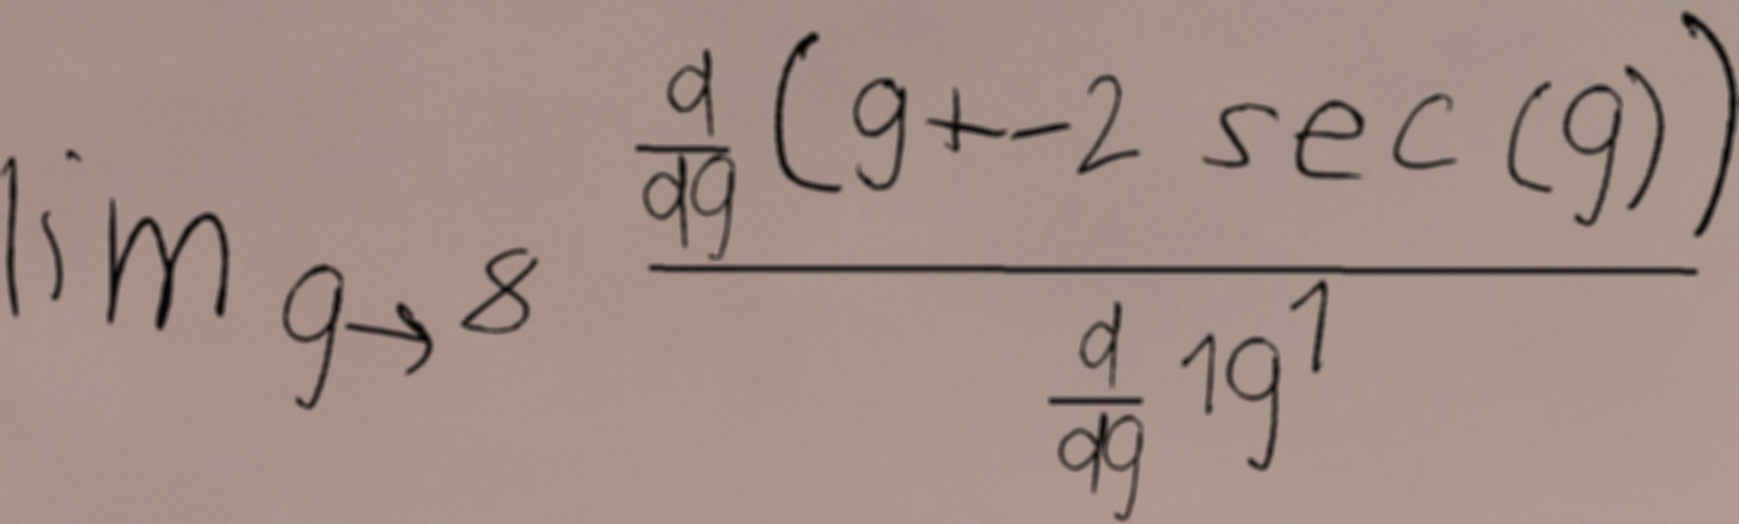 \lim_{g \to 8} \frac{\frac{d}{dg}(g+-2\sec(g))}{\frac{d}{dg}1g^1}